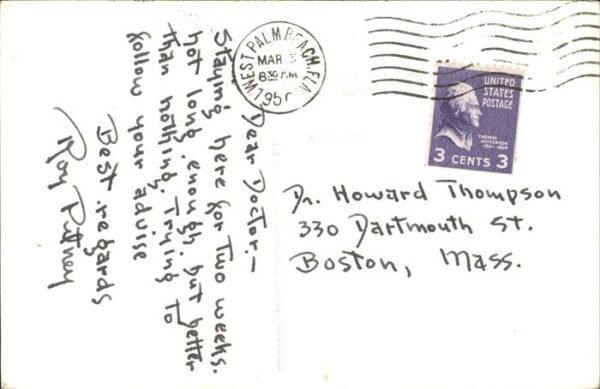 WEST PALM BEACH, FLA.
MAR 3
8:30 P.M.
195
UNITED
STATES
POSTAGE
THOMAS
JEFFERSON
3 CENTS 3
Dear Doctor:—
Staying here for two weeks.
not long enough, but better
than nothing. Trying to
follow your advise
Best regards
Roy
Dr. Howard Thompson
330 Dartmouth St.
Boston, Mass.